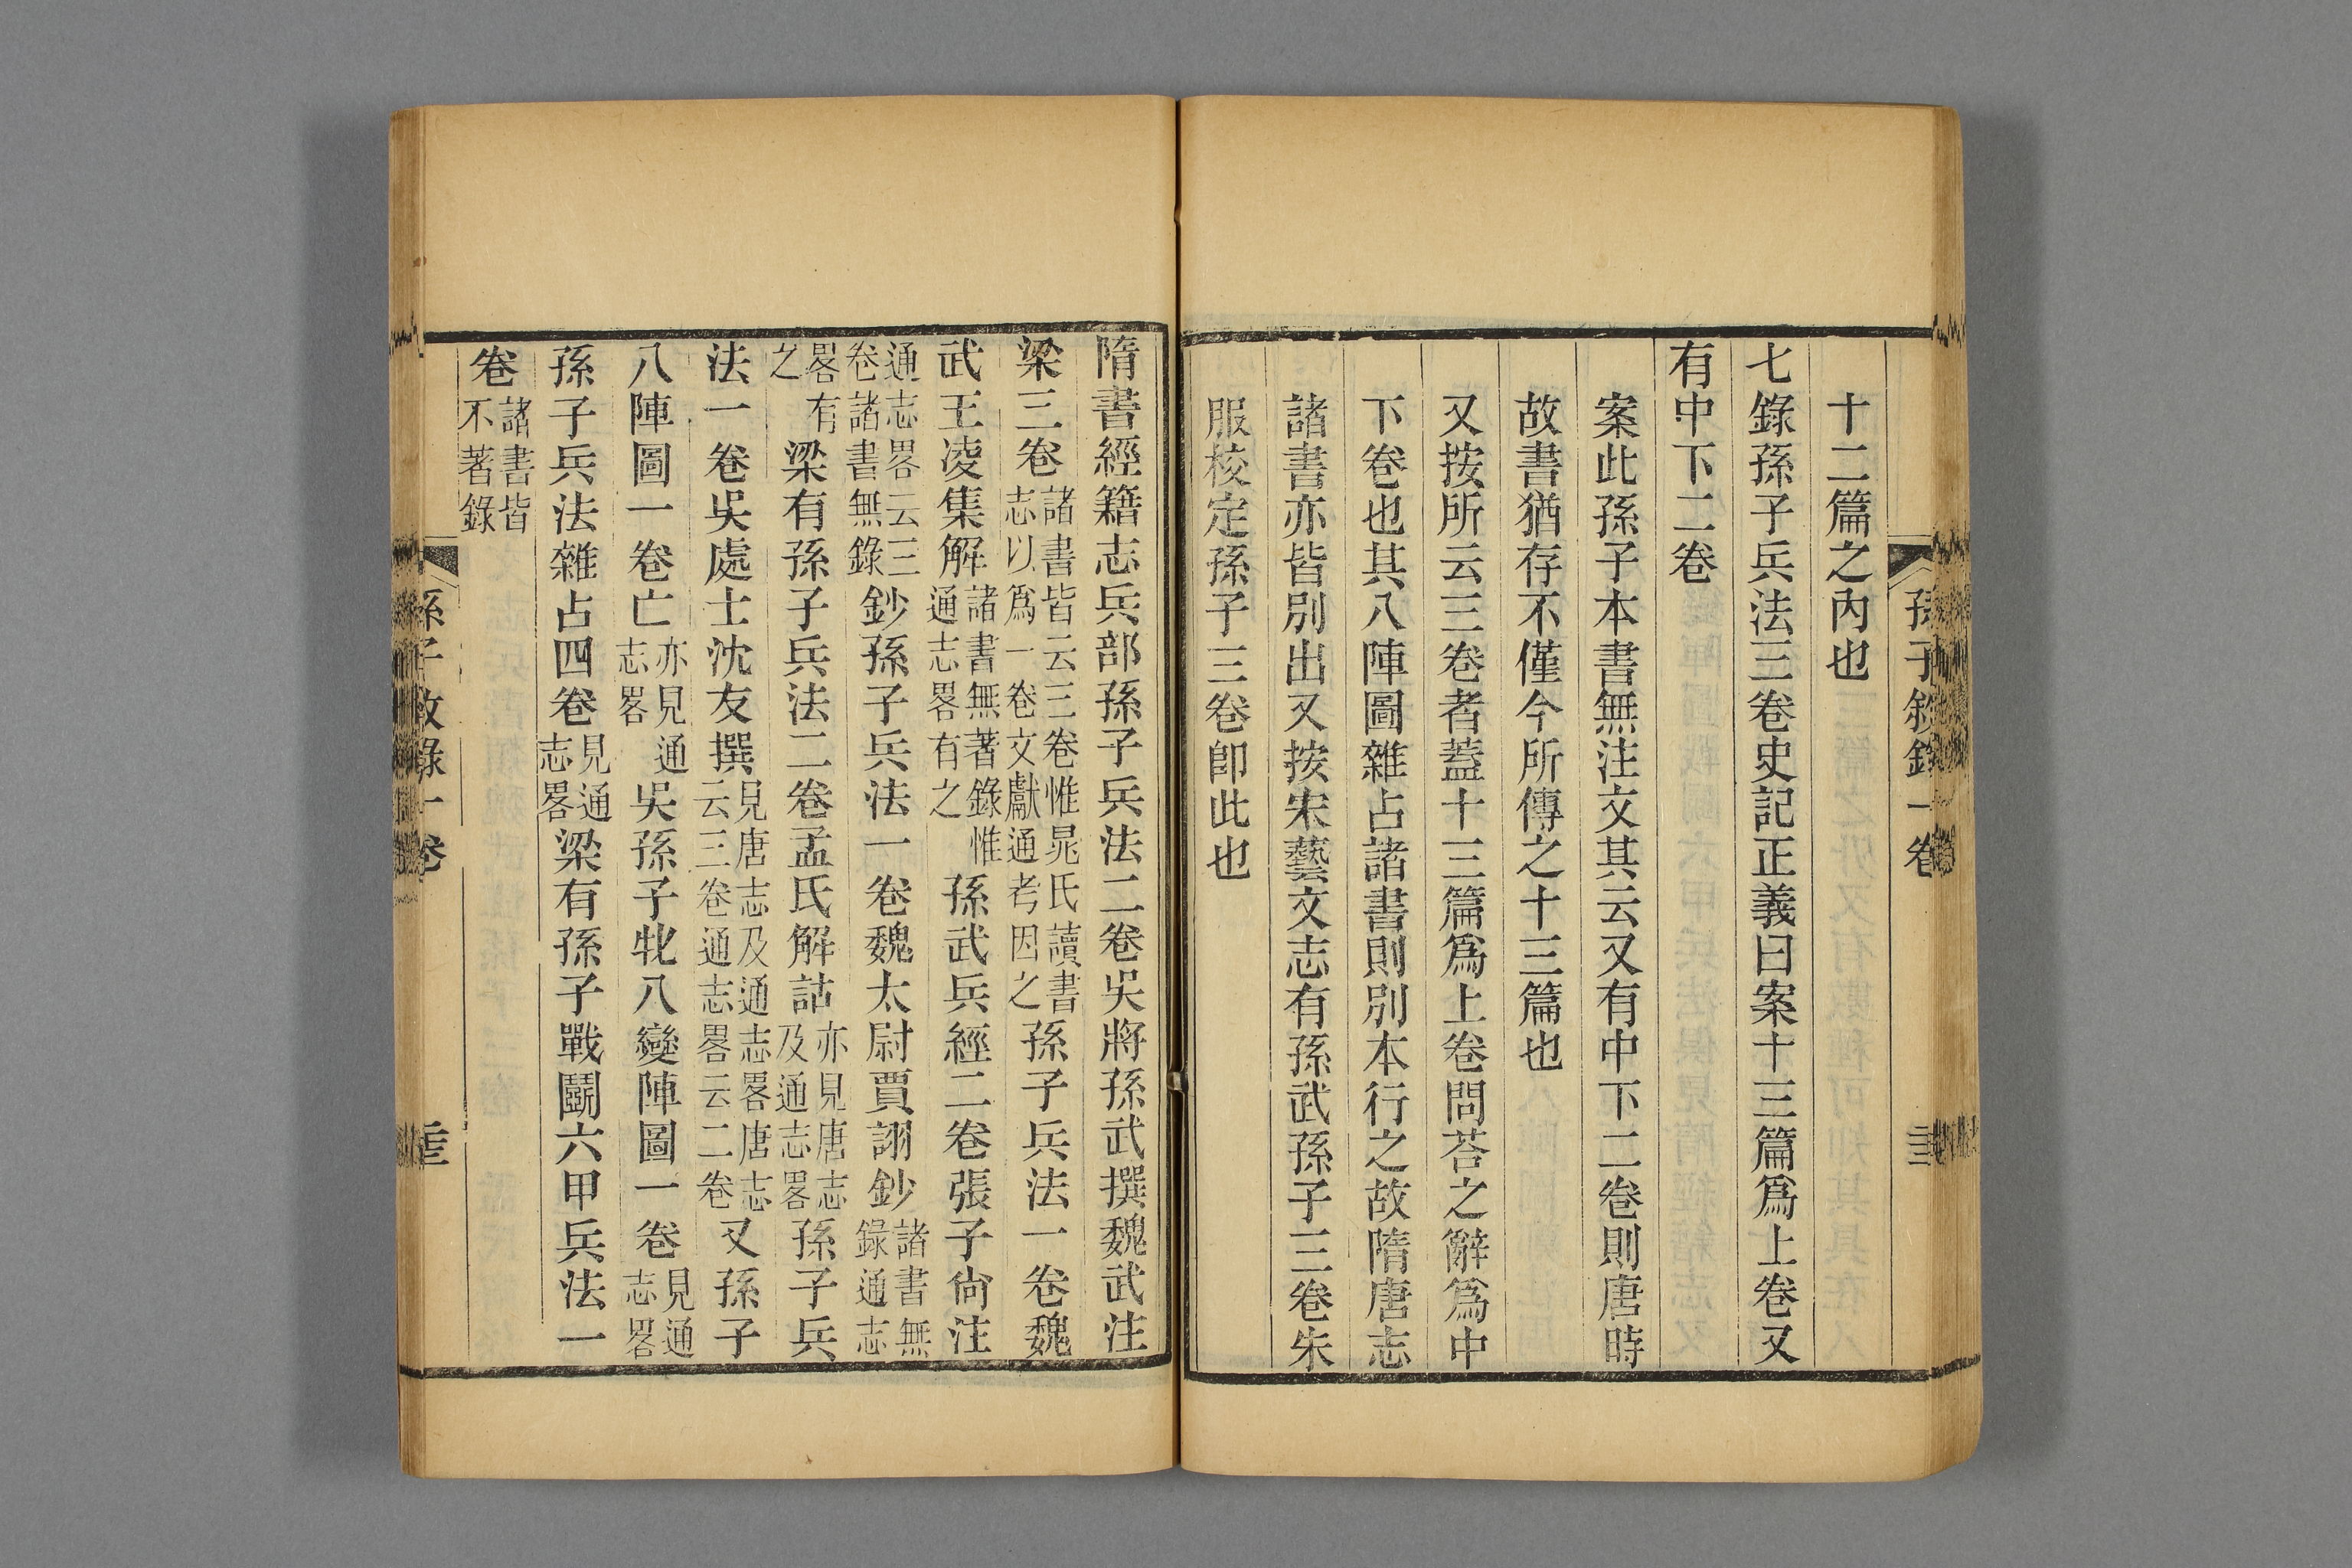 孫子敘錄一卷
三
十二篇之內也
七錄孫子兵法三卷史記正義曰案十三篇爲上卷又
有中下二卷
案此孫子本書無注文其云又有中下二卷則唐時
故書猶存不僅今所傳之十三篇也
又按所云三卷者蓋十三篇爲上卷問荅之辭爲中
下卷也其八陣圖雜占諸書則別本行之故隋唐志
諸書亦皆別出又按宋藝文志有孫武孫子三卷朱
服校定孫子三卷卽此也
隋書經籍志兵部孫子兵法二卷吳將孫武撰魏武注
梁三卷諸書皆云三卷惟晁氏讀書志以爲一卷文獻通考因之孫子兵法一卷魏
武王凌集解諸書無著錄惟通志畧有之孫武兵經二卷張子尙注
通志畧云三卷諸書無錄鈔孫子兵法一卷魏太尉賈詡鈔諸書無錄通志
畧有之梁有孫子兵法二卷孟氏解詁亦見唐志及通志畧孫子兵
法一卷吳處士沈友撰見唐志及通志畧唐志云三卷通志畧云二卷又孫子
八陣圖一卷亡亦見通志畧吳孫子牝八變陣圖一卷見通志畧
孫子兵法雜占四卷見通志畧梁有孫子戰鬭六甲兵法一
卷諸書皆不著錄
孫子敘錄一卷